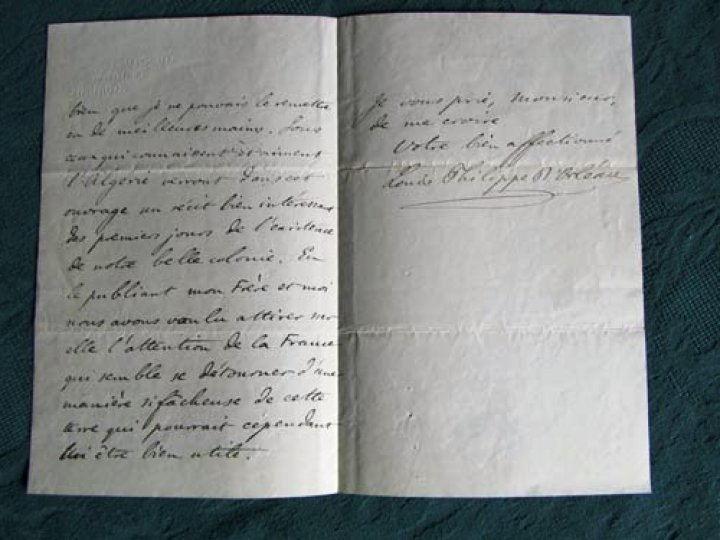 bien que je ne pouvais le remettre
en de meilleures mains. Tous
ceux qui connaissent et aiment
l'Algérie verront dans cet
ouvrage un récit bien intéressant
des premiers jours de l'existence
de notre belle colonie. En
le publiant mon Frère et moi
nous avons voulu attirer sur
elle l'attention de la France
qui semble se détourner d'une
manière si fâcheuse de cette
terre qui pourrait cépendant
lui être bien utile.
Je vous prie, Monsieur,
de me croire
Votre bien affectionné
Louis Philippe d'Orléans